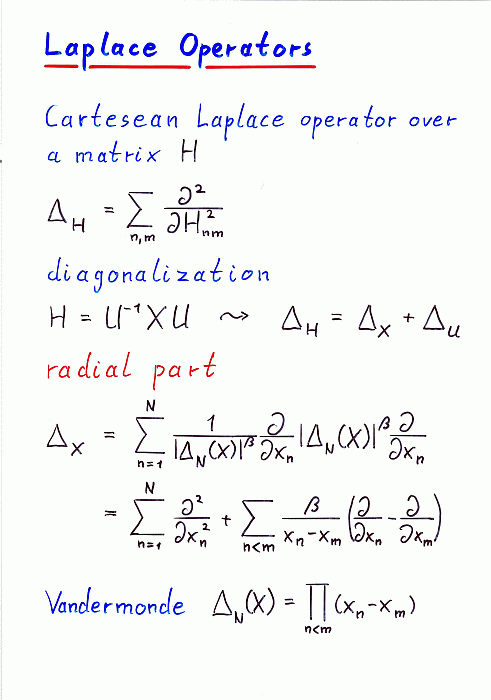 Laplace Operators
Cartesean Laplace operator over
a matrix H
Δ_H = ∑_{n,m} ∂²/∂H²_{nm}
diagonalization
H = U⁻¹XU ⇝ Δ_H = Δ_X + Δ_U
radial part
Δ_X = ∑_{n=1}^{N} 1/|Δ_N(X)|^β ∂/∂x_n |Δ_N(X)|^β ∂/∂x_n
= ∑_{n=1}^{N} ∂²/∂x_n² + ∑_{n<m} β/(x_n-x_m) (∂/∂x_n - ∂/∂x_m)
Vandermonde Δ_N(X) = ∏_{n<m} (x_n-x_m)